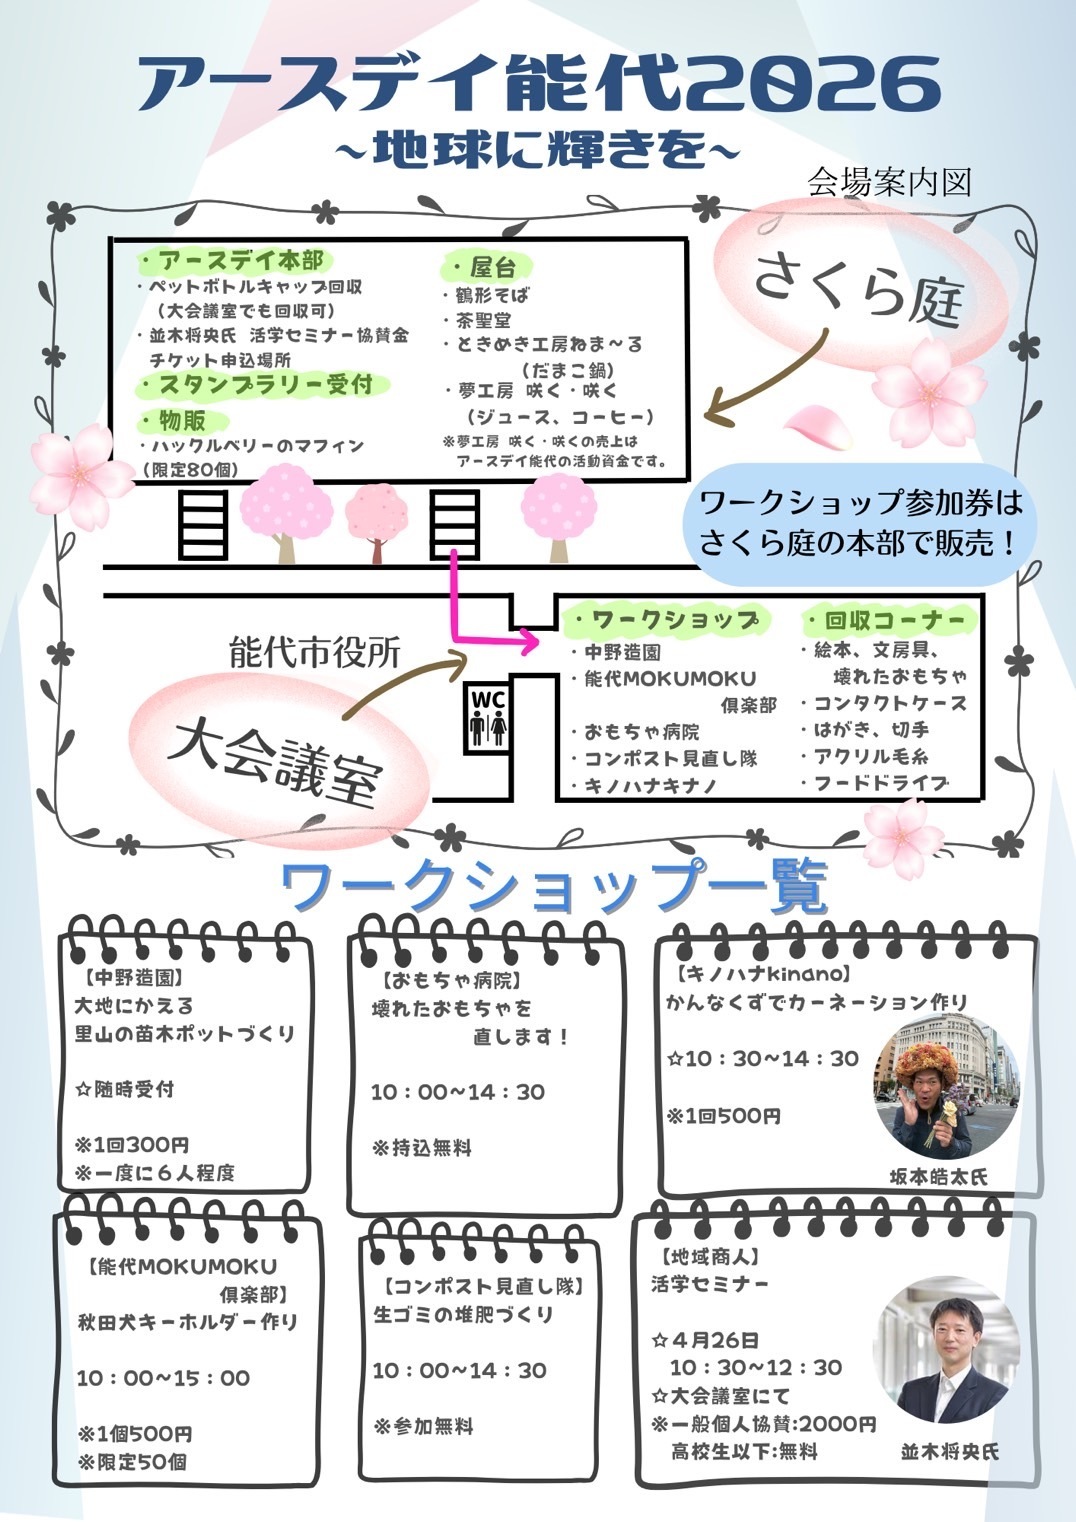 アースデイ能代2026
~地球に輝きを~
会場案内図
さくら庭
・アースデイ本部
・ペットボトルキャップ回収
（大会議室でも回収可）
・並木将央氏 活学セミナー協賛金
チケット申込場所
・スタンプラリー受付
・物販
・ハックルベリーのマフィン
（限定80個）
・屋台
・鶴形そば
・茶聖堂
・ときめき工房ねま～る
（だまこ鍋）
・夢工房 咲く・咲く
（ジュース、コーヒー）
※夢工房 咲く・咲くの売上は
アースデイ能代の活動資金です。
ワークショップ参加券は
さくら庭の本部で販売！
能代市役所
大会議室
WC
・ワークショップ
・中野造園
・能代MOKUMOKU
倶楽部
・おもちゃ病院
・コンポスト見直し隊
・キノハナキナノ
・回収コーナー
・絵本、文房具、
壊れたおもちゃ
・コンタクトケース
・はがき、切手
・アクリル毛糸
・フードドライブ
ワークショップ一覧
【中野造園】
大地にかえる
里山の苗木ポットづくり
☆随時受付
※1回300円
※一度に６人程度
【おもちゃ病院】
壊れたおもちゃを
直します！
10：00~14：30
※持込無料
【キノハナkinano】
かんなくずでカーネーション作り
☆10：30~14：30
※1回500円
坂本皓太氏
【能代MOKUMOKU
倶楽部】
秋田犬キーホルダー作り
10：00~15：00
※1個500円
※限定50個
【コンポスト見直し隊】
生ゴミの堆肥づくり
10：00~14：30
※参加無料
【地域商人】
活学セミナー
☆４月26日
10：30~12：30
☆大会議室にて
※一般個人協賛:2000円
高校生以下:無料
並木将央氏